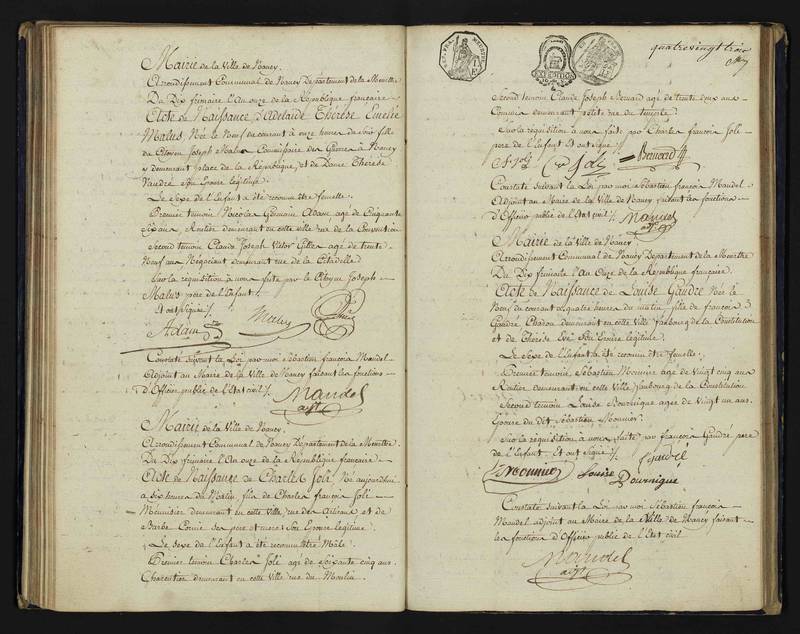 Mairie de la Ville de Nancy.
Arrondissement Communal de Nancy Département de la Meurthe
Du Dix frimaire l'An onze de la République française
Acte de Naissance d'Adelaide Thérèse
Malus Née le Neuf du courant à onze heures du soir fille
du Citoyen Joseph Malus Commissaire des Guerres à Nancy
y demeurant place de la République, et de Dame Thérèse
son Epouse légitime.
Le Sexe de l'Enfant a été reconnu être femelle.
Premier temoin Nicolas Germain Adam agé de Cinquante
Sixans, Rentier demeurant en cette ville rue de la Convention
Second temoin Claude Joseph Victor Gilles agé de trente
Neuf ans Négociant demeurant rue de la Citadelle
Sur la réquisition à nous faite par le Citoyen Joseph
Malus pere de l'Enfant
Et ont signé
Adam Malus
Constaté suivant la Loi par moi Sébastien françois Mandel
Adjoint au Maire de la Ville de Nancy faisant les fonctions
d'Officier public de l'Etat civil
Mandel
adjt
Mairie de la Ville de Nancy.
Arrondissement Communal de Nancy Département de la Meurthe.
Du Dix frimaire l'An onze de la République française
Acte de Naissance de Charles Joli, Né aujourdhui
a six heures du Matin, fils de Charles françois Joli
Menuisier demeurant en cette Ville rue des Artisans et de
Barbe ses pere et mere son Epouse légitime.
Le Sexe de l'Enfant a été reconnu être Mâle.
Premier temoin Charles Joli agé de Soixante cinq ans.
Charpentier demeurant en cette Ville rue du Moulin.
quatrevingt trois
Second temoin Claude Joseph Bernard agé de trente deux ans
Commis demeurant petite rue
Sur la réquisition à nous faite par Charles françois Joli
pere de l'Enfant Et ont signé
Joli Bernard
Constaté suivant la Loi par moi Sébastien françois Mandel
Adjoint au Maire de la Ville de Nancy faisant les fonctions
d'Officier public de l'Etat civil
Mandel
adjt
Mairie de la Ville de Nancy.
Arrondissement Communal de Nancy Département de la Meurthe
Du Dix frimaire l'An Onze de la République française.
Acte de Naissance de Louise Gaudré Née le
Neuf du courant à quatre heures du matin, fille de françois
Gaudré Charon demeurant en cette Ville faubourg de la Constitution
et de Thérèse Eve Son Epouse légitime.
Le Sexe de l'Enfant a été reconnu être femelle
Premier temoin Sébastien Monnier agé de Vingt cinq ans
Rentier demeurant en cette Ville faubourg de la Constitution
Second temoin Louise Dournique agée de Vingt un ans.
Epouse du dit Sébastien Monnier.
Sur la réquisition à nous faite par françois Gaudré pere
de l'Enfant. Et ont signé
Gaudré
Monnier Louise
Dournique
Constaté suivant la Loi par moi Sébastien françois
Mandel adjoint au Maire de la Ville de Nancy faisant
les fonctions d'Officier public de l'Etat civil
Mandel
adjt